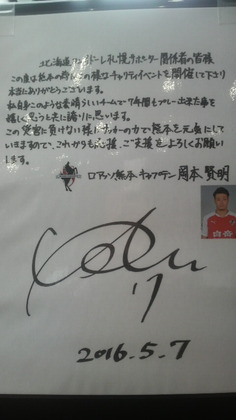 北海道コンサドーレ札幌サポーター関係者の皆様
この度は熊本の為にこの様なチャリティイベントを開催して下さり
本当にありがとうございます。
私自身このような素晴らしいチームで7年間もプレー出来た事を
嬉しく思うと共に誇りに思います。
この災害に負けない様にサッカーの力で熊本を元気にして
いきますので、これからも応援、ご支援をよろしくお願い
します。
ロアッソ熊本 キャプテン 岡本賢明
17
2016.5.7